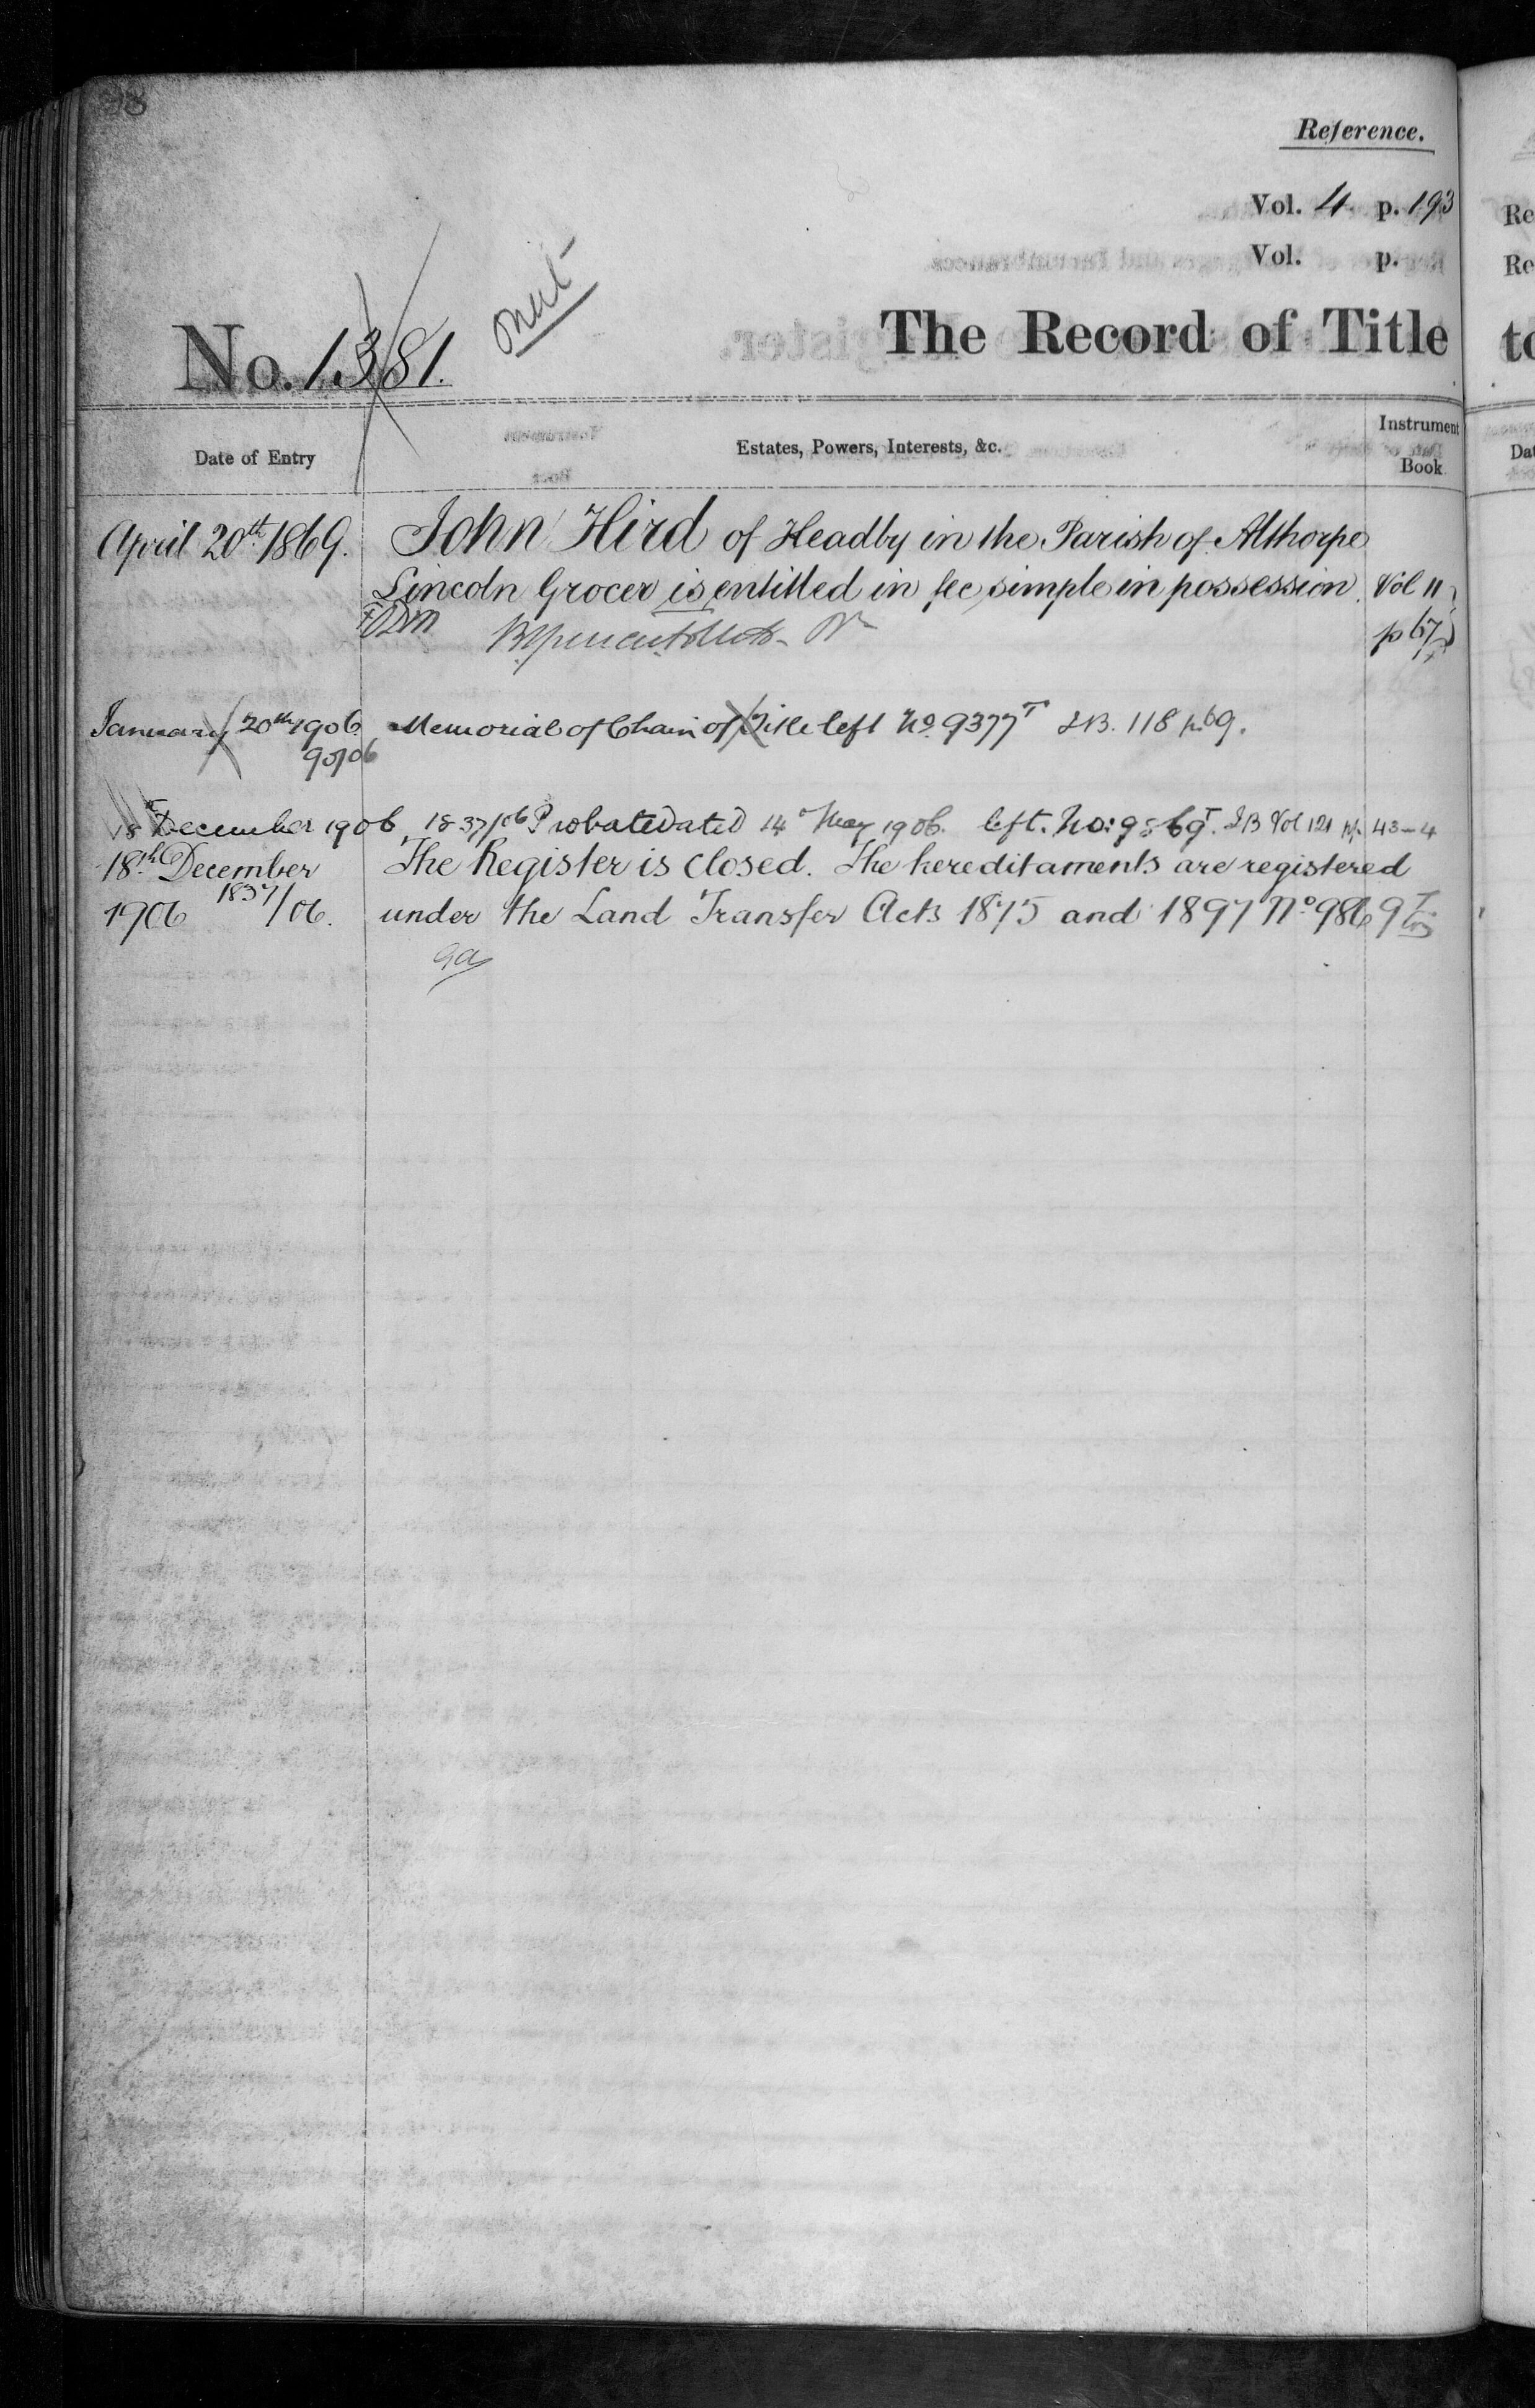 98
Reference.
Vol. 4 p. 193
Vol. p.
omit
No. 1381. The Record of Title
Date of Entry Estates, Powers, Interests, &c. Instrument Book
April 20th 1869. John Hird of Headby in the Parish of Althorpe
Lincoln Grocer is entitled in fee simple in possession Vol 11
p 67
January 20th 1906 Memorial of Chain of Title left No. 9377T I.B. 118 p. 69.
18th December 1906 1837/06 Probate dated 14 May 1906. left. No: 9869T. I B Vol 121 p. 43-4
18th December The Register is closed. The hereditaments are registered
1906 1837/06. under the Land Transfer Acts 1875 and 1897 No 9869